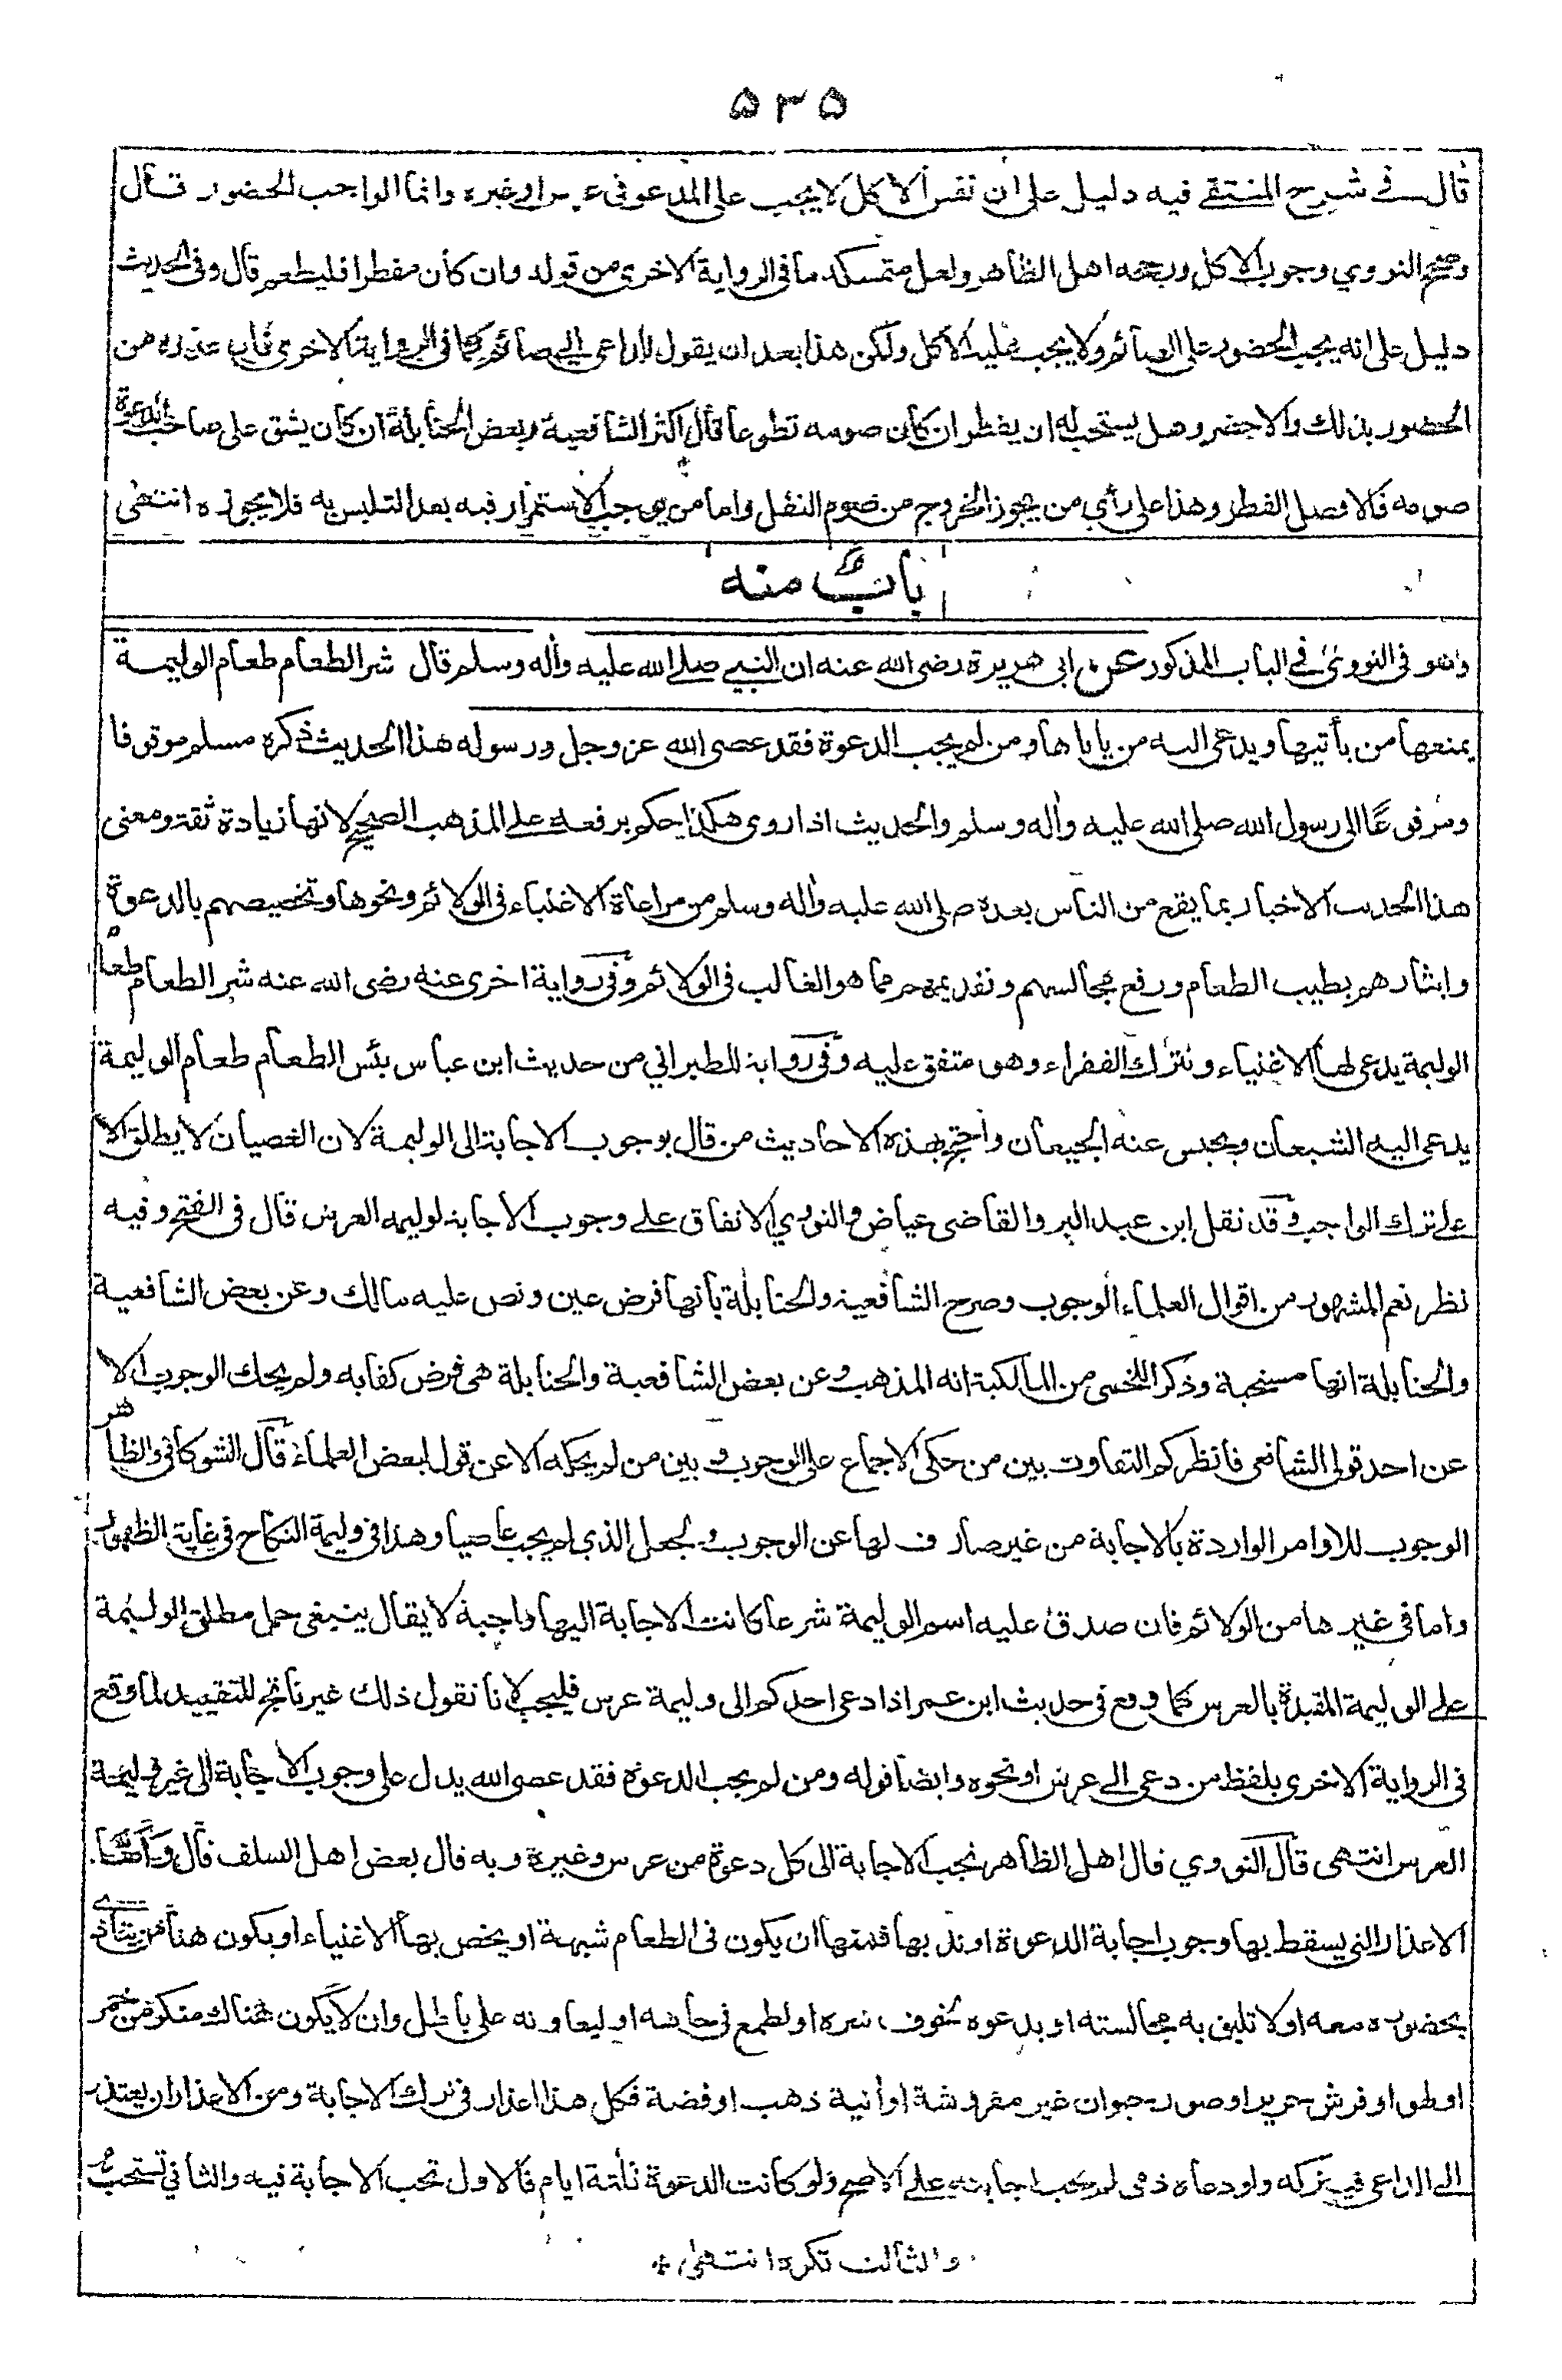 ٥٣٥
قال في شرح المنتقى فيه دليل على ان نفس الاكل لا يجب على المدعو في عرس او غيره وانما الواجب الحضور قال
وصحح النووي وجوب الاكل ورجحه اهل الظاهر ولعل متمسكه ما في الرواية الاخرى من قوله وان كان مفطرا فليطعم قال وفي الحديث
دليل على انه يجب الحضور على الصائم ولا يجب عليه الاكل ولكن هذا بعد ان يقول للداعي اني صائم كما في الرواية الاخرى فان عذره من
الحضور بذلك والا حضر وهل يستحب له ان يفطر ان كان صومه تطوعا قال اكثر الشافعية وبعض الحنابلة ان كان يشق على صاحب الدعوة
صومه فالافضل الفطر وهذا على رأي من يجوز الخروج من صوم النفل واما من يوجب الاستمرار فيه بعد التلبس به فلا يجوزه انتهى
باب منه
وهو في النووي في الباب المذكور عن ابي هريرة رضى الله عنه ان النبي صلى الله عليه وأله وسلم قال شر الطعام طعام الوليمة
يمنعها من يأتيها ويدعى اليه من يأباها ومن لم يجب الدعوة فقد عصى الله عز وجل ورسوله هذا الحديث ذكره مسلم موقوفا
ومرفوعًا الى رسول الله صلى الله عليه وأله وسلم والحديث اذا روى هكذا يحكم برفعه على المذهب الصحيح لانها زيادة ثقة ومعنى
هذا الحديث الاخبار بما يقع من الناس بعده صلى الله عليه وأله وسلم من مراعاة الاغنياء في الولائم ونحوها وتخصيصهم بالدعوة
وايثارهم بطيب الطعام ورفع مجالسهم وتقديمهم مما هو الغالب في الولائم وفي رواية اخرى عنه رضى الله عنه شر الطعام طعام
الوليمة يدعى لها الاغنياء ونترك الفقراء وهو متفق عليه وفي رواية للطبراني من حديث ابن عباس بئس الطعام طعام الوليمة
يدعى اليه الشبعان ويحبس عنه الجيعان واحتج بهذه الاحاديث من قال بوجوب الاجابة الى الوليمة لان العصيان لا يطلق الا
على ترك الواجب وقد نقل ابن عبد البر والقاضي عياض والنووي الاتفاق على وجوب الاجابة لوليمه العرس قال في الفتح وفيه
نظر نعم المشهور من اقوال العلماء الوجوب وصرح الشافعية والحنابلة بأنها فرض عين ونص عليه مالك وعن بعض الشافعية
والحنابلة انها مستحبة وذكر اللخمى من المالكية انه المذهب وعن بعض الشافعية والحنابلة هى فرض كفايه ولم يحك الوجوب الا
عن احد قولى الشافعى فانظر كم التفاوت بين من حكى الاجماع على الوجوب وبين من لم يحكه الا عن قول لبعض العلماء قال الشوكاني والظاهر
الوجوب للاوامر الواردة بالاجابة من غير صارف لها عن الوجوب ولجعل الذي لم يجب عاصيا وهذا في وليمة النكاح في غاية الظهور
واما في غيرها من الولائم فان صدق عليه اسم الوليمة شرعا كانت الاجابة اليها واجبة لا يقال ينبغى حمل مطلق الوليمة
على الوليمة المقيدة بالعرس كما وقع في حديث ابن عمر اذا دعى احدكم الى وليمة عرس فليجب لانا نقول ذلك غير ناتج للتقييد لما وقع
في الرواية الاخرى بلفظ من دعى الى عرس او نحوه وايضا قوله ومن لم يجب الدعوة فقد عصى الله يدل على وجوب الاجابة الى غير وليمة
العرس انتهى قال النووي قال اهل الظاهر تجب الاجابة الى كل دعوة من عرس وغيره وبه قال بعض اهل السلف قال وأما
الاعذار التي يسقط بها وجوب اجابة الدعوة او ندبها فمنها ان يكون في الطعام شبهة او يخص بها الاغنياء او يكون هناك من يتأذى
بحضوره معه او لا تليق به مجالسته او يدعوه لخوف شره او لطمع في جاهه او ليعاونه على باطل وان لا يكون هناك منكر من خمر
او لهو او فرش حرير او صور حيوان غير مفروشة او أنية ذهب او فضة فكل هذا اعذار في ترك الاجابة ومن الاعذار ان يعتذر
الى الداعي فيتركه ولو دعاه ذمى لم يجب اجابته على الاصح ولو كانت الدعوة ثلثة ايام فالاول تجب الاجابة فيه والثاني تستحب
والثالث تكره انتهى +